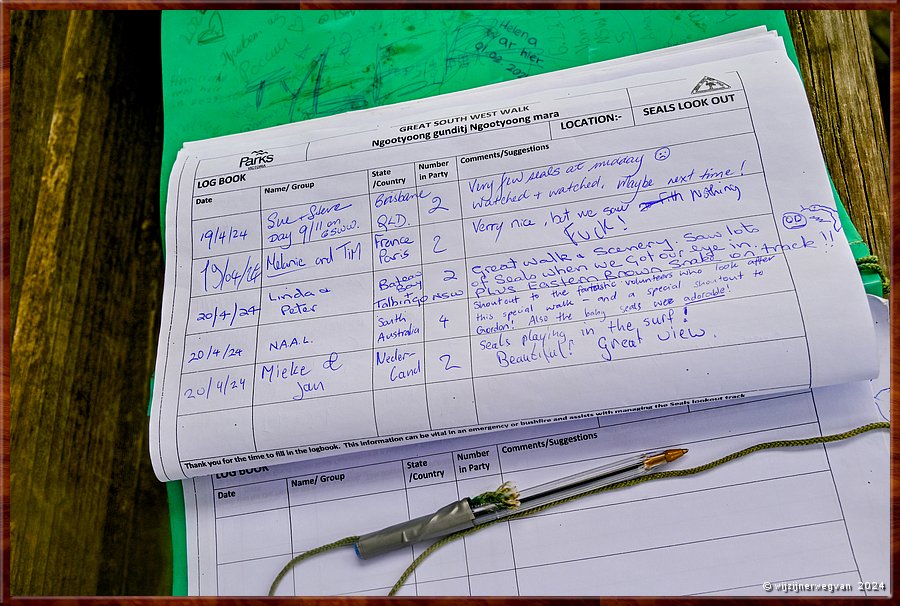 Helena
war hier
01.02.202
GREAT SOUTH WEST WALK
Ngootyoong gunditj Ngootyoong mara
LOCATION:-
SEALS LOOK OUT
Parks
VICTORIA
LOG BOOK
Date
Name/ Group
State
/Country
Number
in Party
Comments/Suggestions
19/4/24
Sue + Steve
Day 9/11 on
GSWW.
Brisbane
QLD.
2
Very few seals at midday ☹
watched + watched, maybe next time!
19/04/24
Melanie and TiM
France
Paris
2
Verry nice, but we saw Nothing
Fuck!
20/4/24
Linda &
Peter
Bateau
Bay
Talbingo NSW
2
Great walk & Scenery. Saw lots
of Seals when we got our eye in.
PLUS Eastern Brown Snake on track!!
20/4/24
N.A.A.L.
South
Australia
4
Shoutout to the fantastic volunteers who look after
this special walk - and a special shoutout to
Gordon! Also the baby seals were adorable!
Seals playing in the surf!
20/4/24
Mieke &
Jan
Neder-
land
2
Beautiful! Great view.
Thank you for the time to fill in the logbook. This information can be vital in an emergency or bushfire and assists with managing the Seals lookout track
LOG BOOK
Date
Name/ Group
State
/Country
Number
in Party
Comments/Suggestions
© wijzijnerwegvan 2024